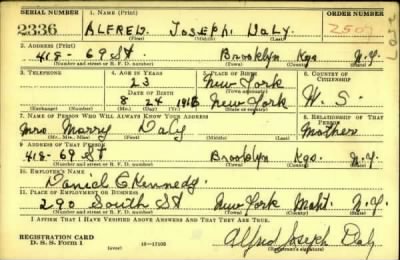 SERIAL NUMBER 1. NAME (Print) ORDER NUMBER
2336 ALFRED. Joseph DALY. 2507
(First) (Middle) (Last)
2. ADDRESS (Print)
418- 69 St Brooklyn Kgs N.Y.
(Number and street or R. F. D. number) (Town) (County) (State)
3. TELEPHONE 4. AGE IN YEARS 5. PLACE OF BIRTH 6. COUNTRY OF CITIZENSHIP
23 New York
DATE OF BIRTH (Town or county)
8 24 1916 New York U. S.
(Exchange) (No.) (Mo.) (Day) (Yr.) (State or country)
7. NAME OF PERSON WHO WILL ALWAYS KNOW YOUR ADDRESS 8. RELATIONSHIP OF THAT PERSON
Mrs Marry Daly Mother
(Mr., Mrs., Miss) (First) (Middle) (Last)
9. ADDRESS OF THAT PERSON
418- 69 St Brooklyn Kgs. N.Y.
(Number and street or R. F. D. number) (Town) (County) (State)
10. EMPLOYER'S NAME
Daniel C Kennedy.
11. PLACE OF EMPLOYMENT OR BUSINESS
290 South St New York Maht. N.Y.
(Number and street or R. F. D. number) (Town) (County) (State)
I AFFIRM THAT I HAVE VERIFIED ABOVE ANSWERS AND THAT THEY ARE TRUE.
REGISTRATION CARD
D. S. S. Form 1 (over) Alfred Joseph Daly
(Registrant's signature)